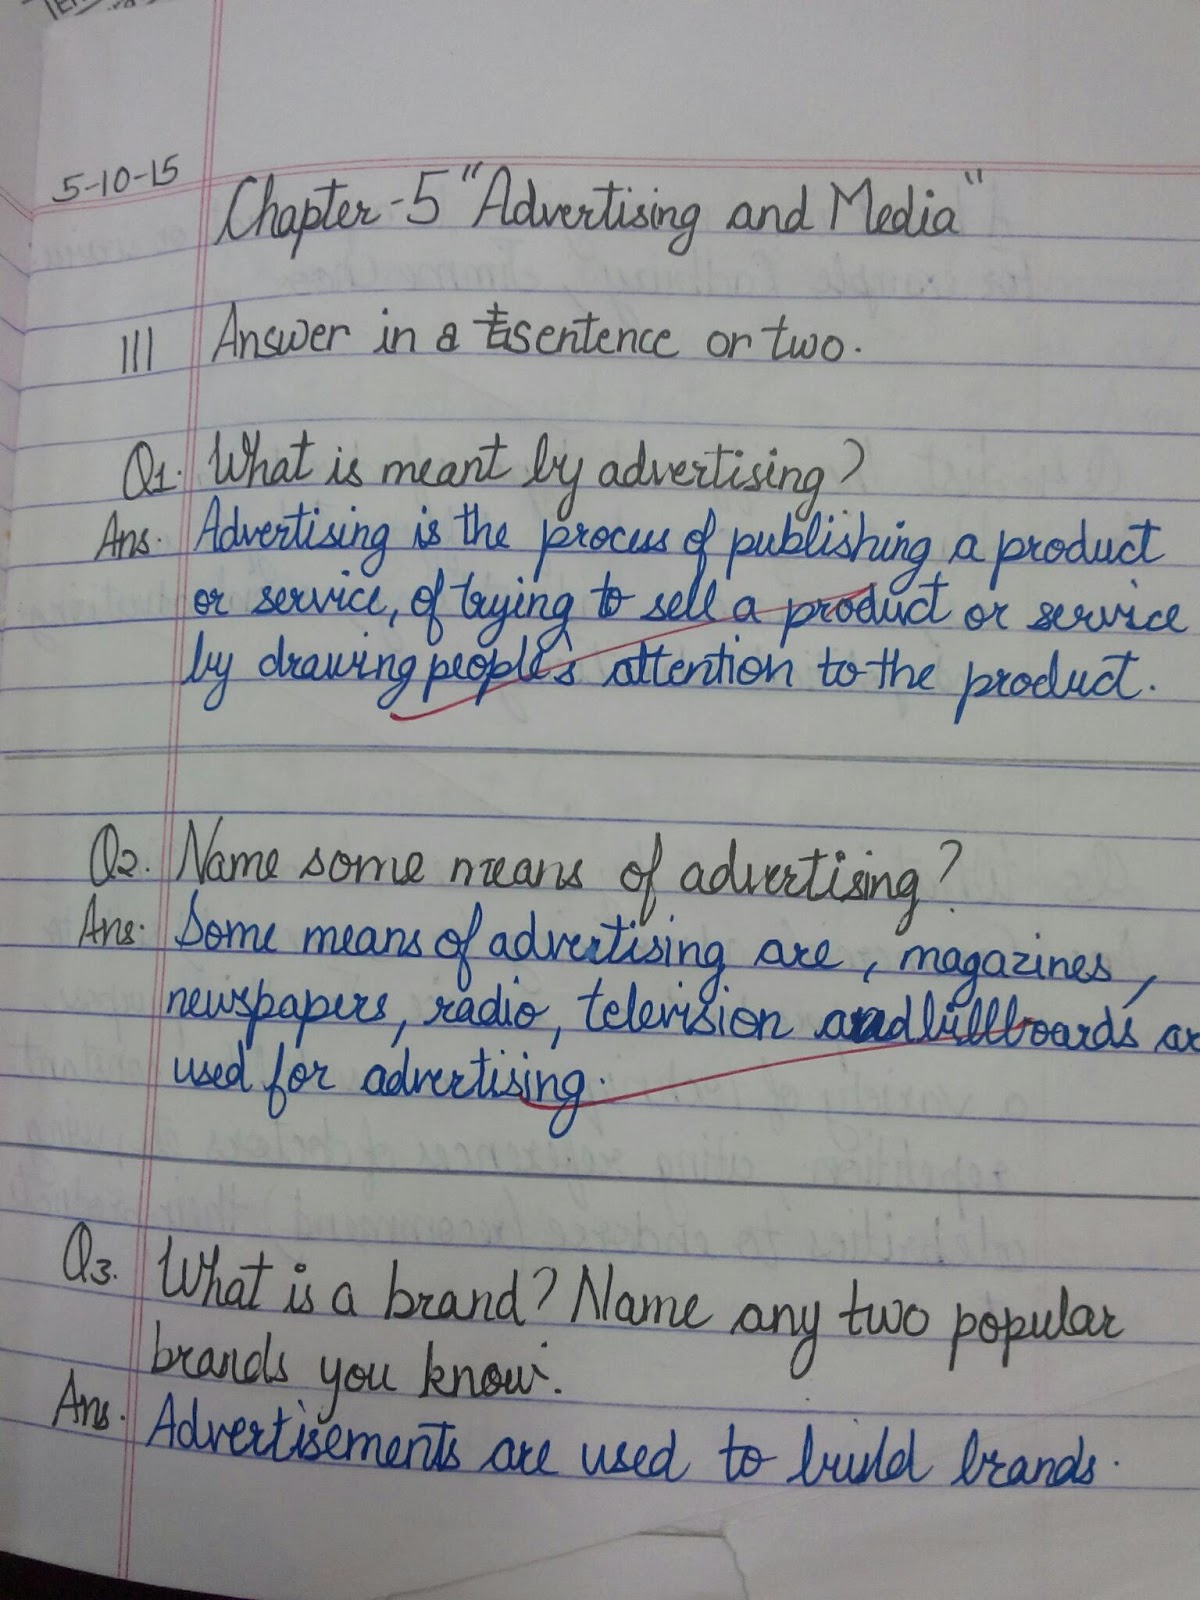 5-10-15
Chapter-5 "Advertising and Media"
III Answer in a sentence or two.
Q1. What is meant by advertising?
Ans. Advertising is the process of publishing a product
or service, of trying to sell a product or service
by drawing people's attention to the product.
Q2. Name some means of advertising?
Ans. Some means of advertising are, magazines,
newspapers, radio, television and billboards ar
used for advertising.
Q3. What is a brand? Name any two popular
brands you know.
Ans. Advertisements are used to build brands.